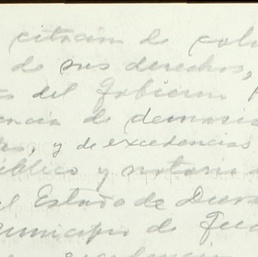 citación de col
de sus derechos,
del Gobierno
encia de demasia
, y de excedencias
público y notario
el Estado de Dura
Municipio de